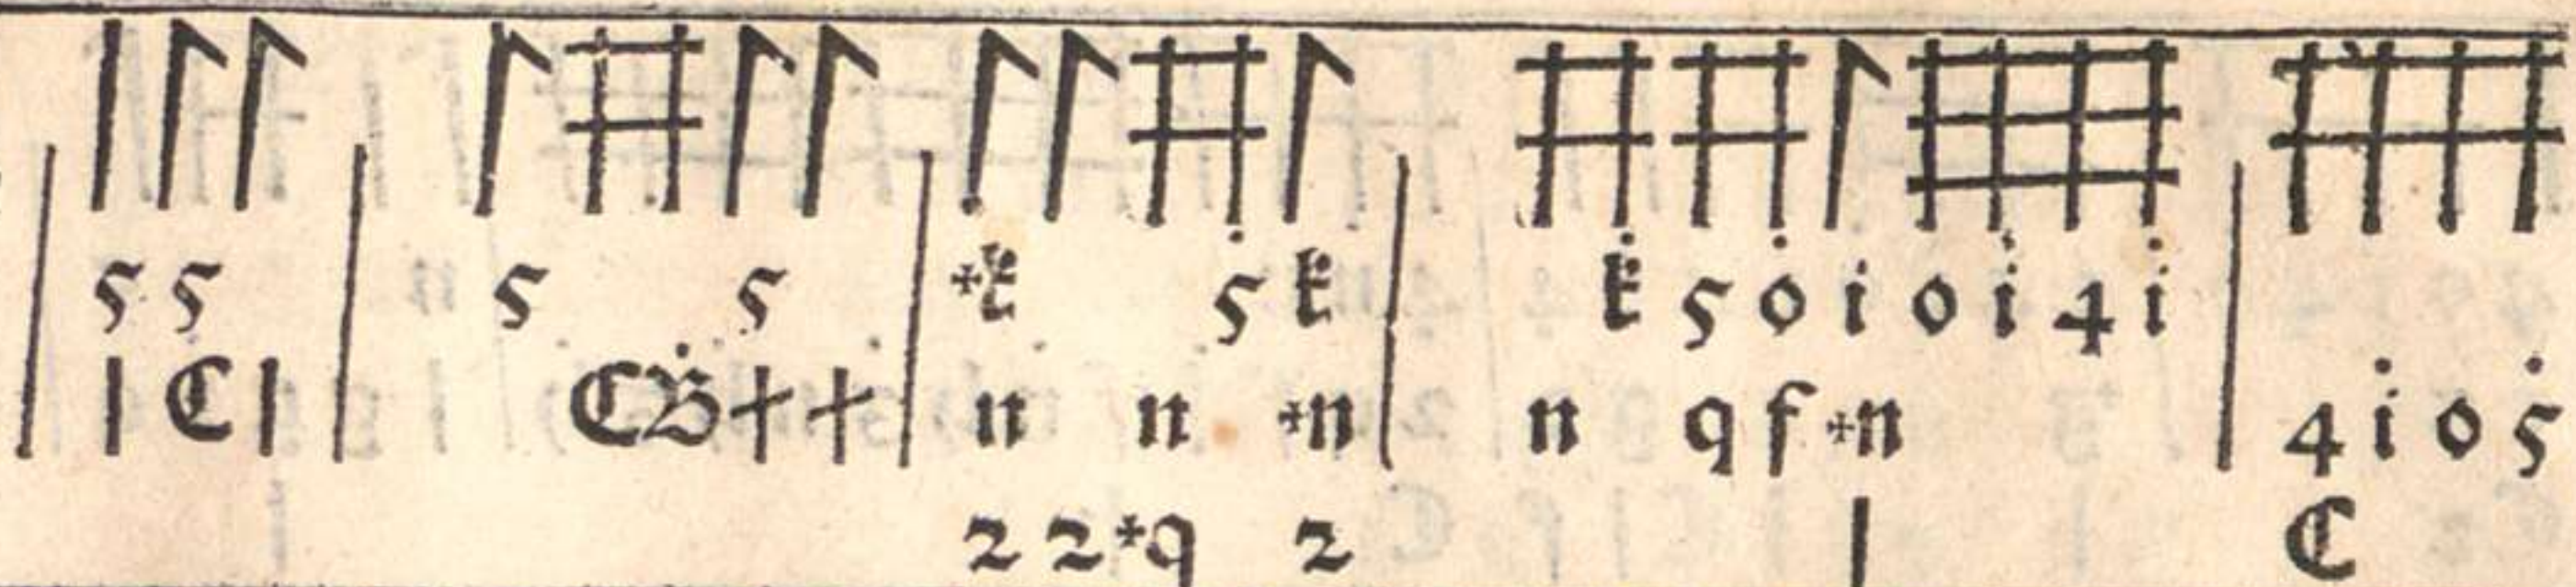 5 5 | 5 5 | +k 5 k | k 5 o i o i 4 i |
1 C 1 | C B † † | n n +n | n q f +n | 4 i o 5
2 2 +q 2 1 C